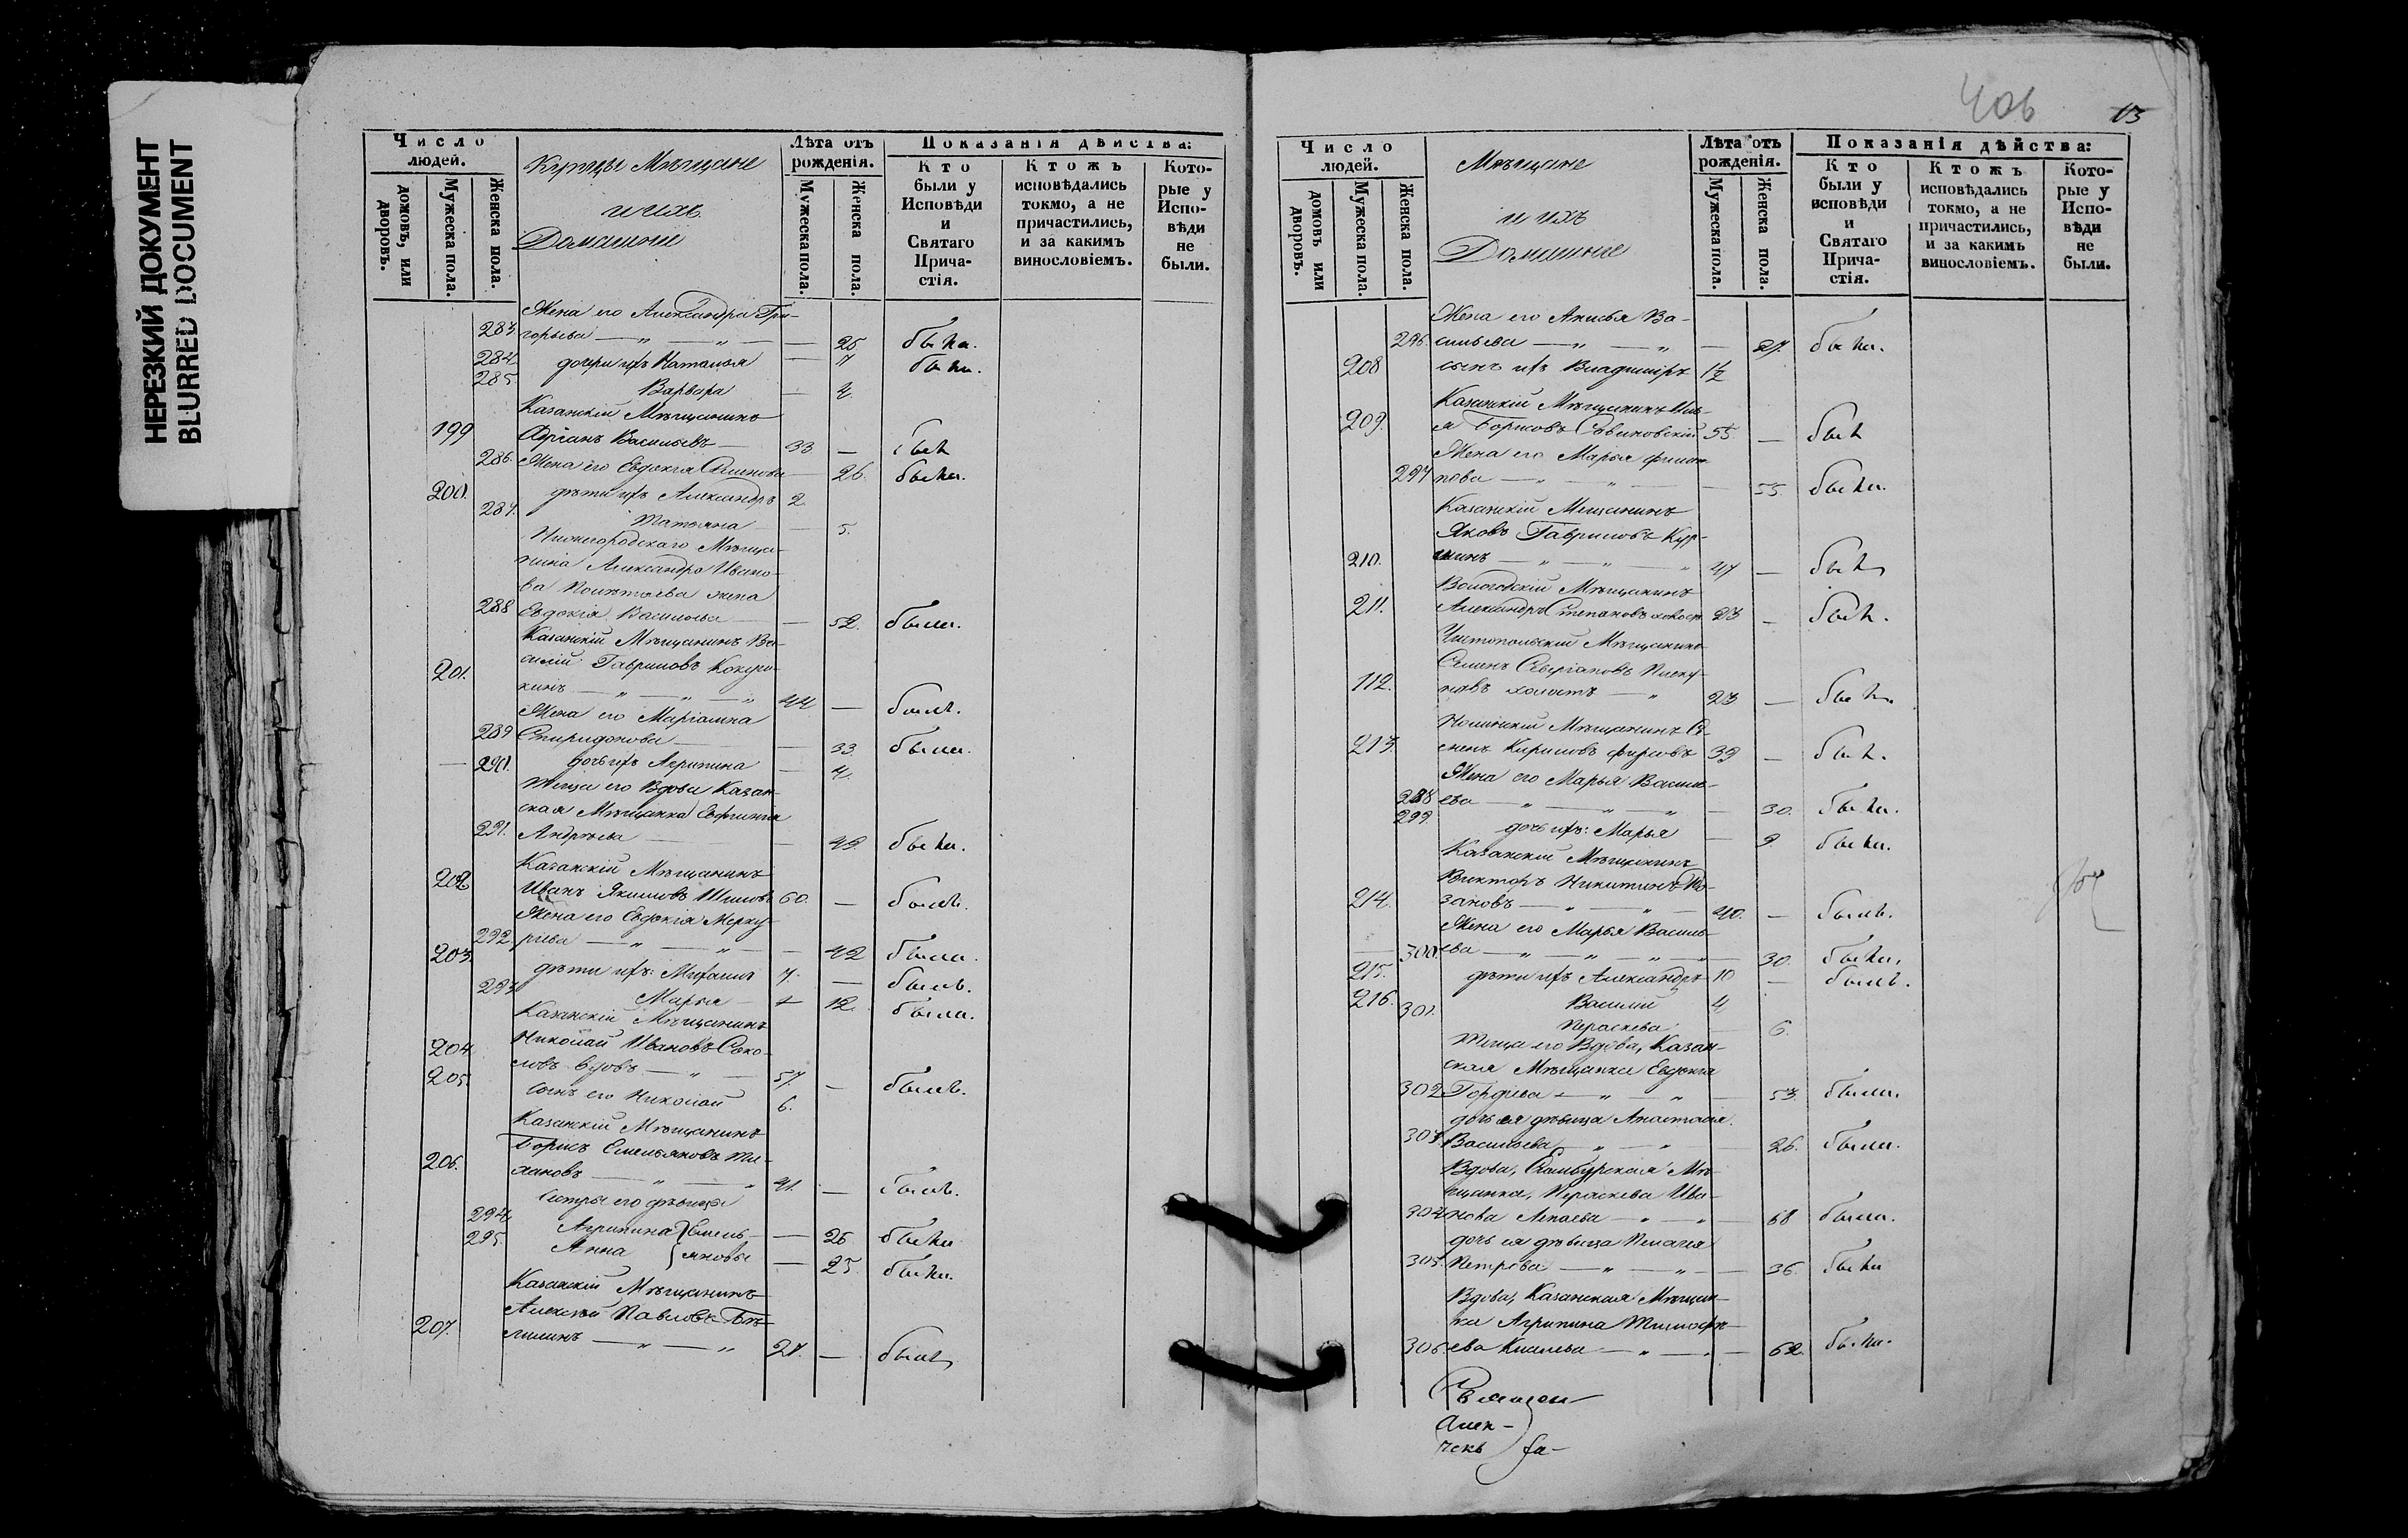 НЕРЕЗКИЙ ДОКУМЕНТ
BLURRED DOCUMENT
Число людей.
домовъ, или дворовъ.
Мужеска пола.
Женска пола.
Купцы Мѣщане
и ихъ
Домашніе
Лѣта отъ рожденія.
Мужеска пола.
Женска пола.
Показанія дѣйства:
Кто были у Исповѣди и Святаго Причастія.
Ктожъ исповѣдались токмо, а не причастились, и за какимъ винословіемъ.
Которые у Исповѣди не были.
Жена его Александра Гри-
283. горьева — „ — „ — — 25 была.
284. дочери ихъ Наталья — 7 была.
285. Варвара — 4
Казанскій Мѣщанинъ
199 Адріанъ Васильевъ — 33 — былъ
286. Жена его Евдокія Семенова — 26. была.
200. дѣти ихъ Александръ 2
287. Татьяна — 5.
Нижегородскаго Мѣща-
нина Александра Ивано-
ва жена
288 Евдокія Васильева — 52. была.
Казанскій Мѣщанинъ Ва-
силій Гавриловъ
201. — „ — „ — „ 44 — былъ.
Жена его Маріамна
289 Спиридонова — — 33. была.
— 290. дочь ихъ Агрипина — 4.
Теща его Вдова Казан-
ская Мѣщанка Евфимія
291. Андреева — — 49. была.
Казанскій Мѣщанинъ
202 Иванъ Якимовъ Шиловъ 60. — былъ.
Жена его Евдокія Мерку-
292 рьева — „ — „ — — 42 была.
203. дѣти ихъ: Михаилъ 7. — былъ.
293 Марья — 12. была.
Казанскій Мѣщанинъ
204. Николай Ивановъ Соко-
ловъ вдовъ — „ — 57. — былъ.
205. сынъ его Николай 6.
Казанскій Мѣщанинъ
Борисъ Емельяновъ Ти-
206. хановъ — „ — „ 21. — былъ.
Сестры его дѣвицы
294. Агрипина } Емель- — 26 была
295. Анна } яновы — 25. была.
Казанскій Мѣщанинъ
Алексѣй Павловъ Бѣ-
207. лилинъ — „ — „ 27. — былъ
406
13
Число людей.
домовъ или дворовъ.
Мужеска пола.
Женска пола.
Мѣщане
и ихъ
Домашніе
Лѣта отъ рожденія.
Мужеска пола.
Женска пола.
Показанія дѣйства:
Кто были у исповѣди и Святаго Причастія.
Ктожъ исповѣдались токмо, а не причастились, и за какимъ винословіемъ.
Которые у Исповѣди не были.
Жена его Анисья Ва-
296. сильева — „ — „ — 27. была.
208 сынъ ихъ Владиміръ 1½
Казанскій Мѣщанинъ Иль-
209. я Борисовъ 55. — былъ
Жена его Марья Филип-
297 пова — „ — „ — — 55. была.
Казанскій Мещанинъ
Яковъ Гавриловъ Кур-
210. шинъ — „ — „ — „ 47 — былъ
Вологодскій Мѣщанинъ
211. Александръ Степановъ холостъ 23 — былъ.
Чистопольскій Мѣщанинъ
Семенъ
112. новъ холостъ — „ 23 — былъ.
Нолинскій Мѣщанинъ Се-
213. менъ Кириловъ Фирсовъ 39 — былъ.
Жена его Марья Василь-
298 ева — „ — „ — „ — 30. была.
299. дочь ихъ: Марья — 9. была.
Казанскій Мѣщанинъ
Викторъ Никитинъ Ро-
214. зановъ — „ — „ — 40. — былъ.
Жена его Марья Василь-
— 300. ева — „ — „ — „ — 30. была.
215. дѣти ихъ Александръ 10 — былъ.
216. Василій 4
301. Параскева — 6.
Теща его Вдова, Казан-
ская Мѣщанка Евдокія
302 Гордѣева — „ — „ — 53. была.
дочь ея дѣвица Анастасія
303. Васильева — „ — „ — 26. была.
Вдова, Симбурская Мѣ-
щанка, Параскева Ива-
304 нова — „ — „ — 68 была.
дочь ея дѣвица Пелагія
305. Петрова — „ — „ — 36. была
Вдова, Казанская Мѣщан-
ка Агрипина Тимофе-
306. ева — „ — — 62. была.